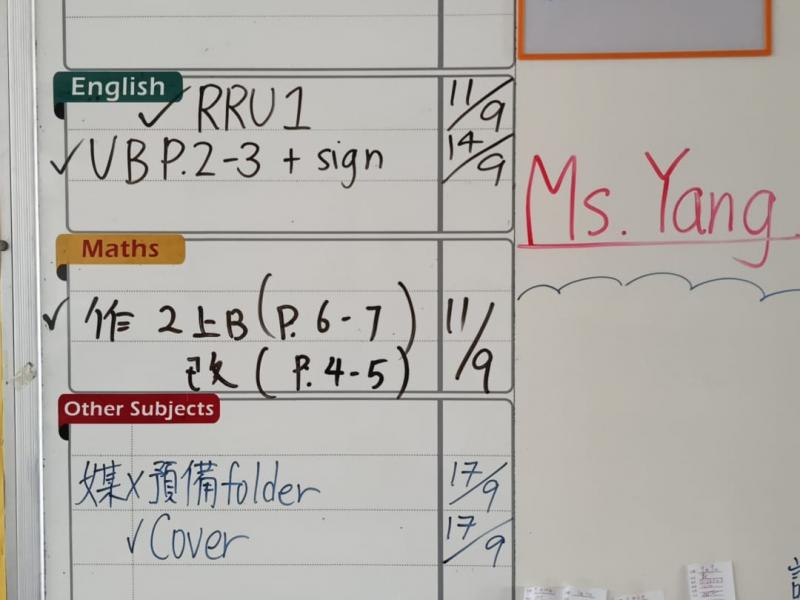 English
✓ RRU1 11/9
✓ VB P.2-3 + sign 14/9
Ms. Yang
Maths
✓ 作 2上B (P. 6-7) 11/9
改 (P. 4-5)
Other Subjects
媒 x 預備folder 17/9
✓ Cover 17/9